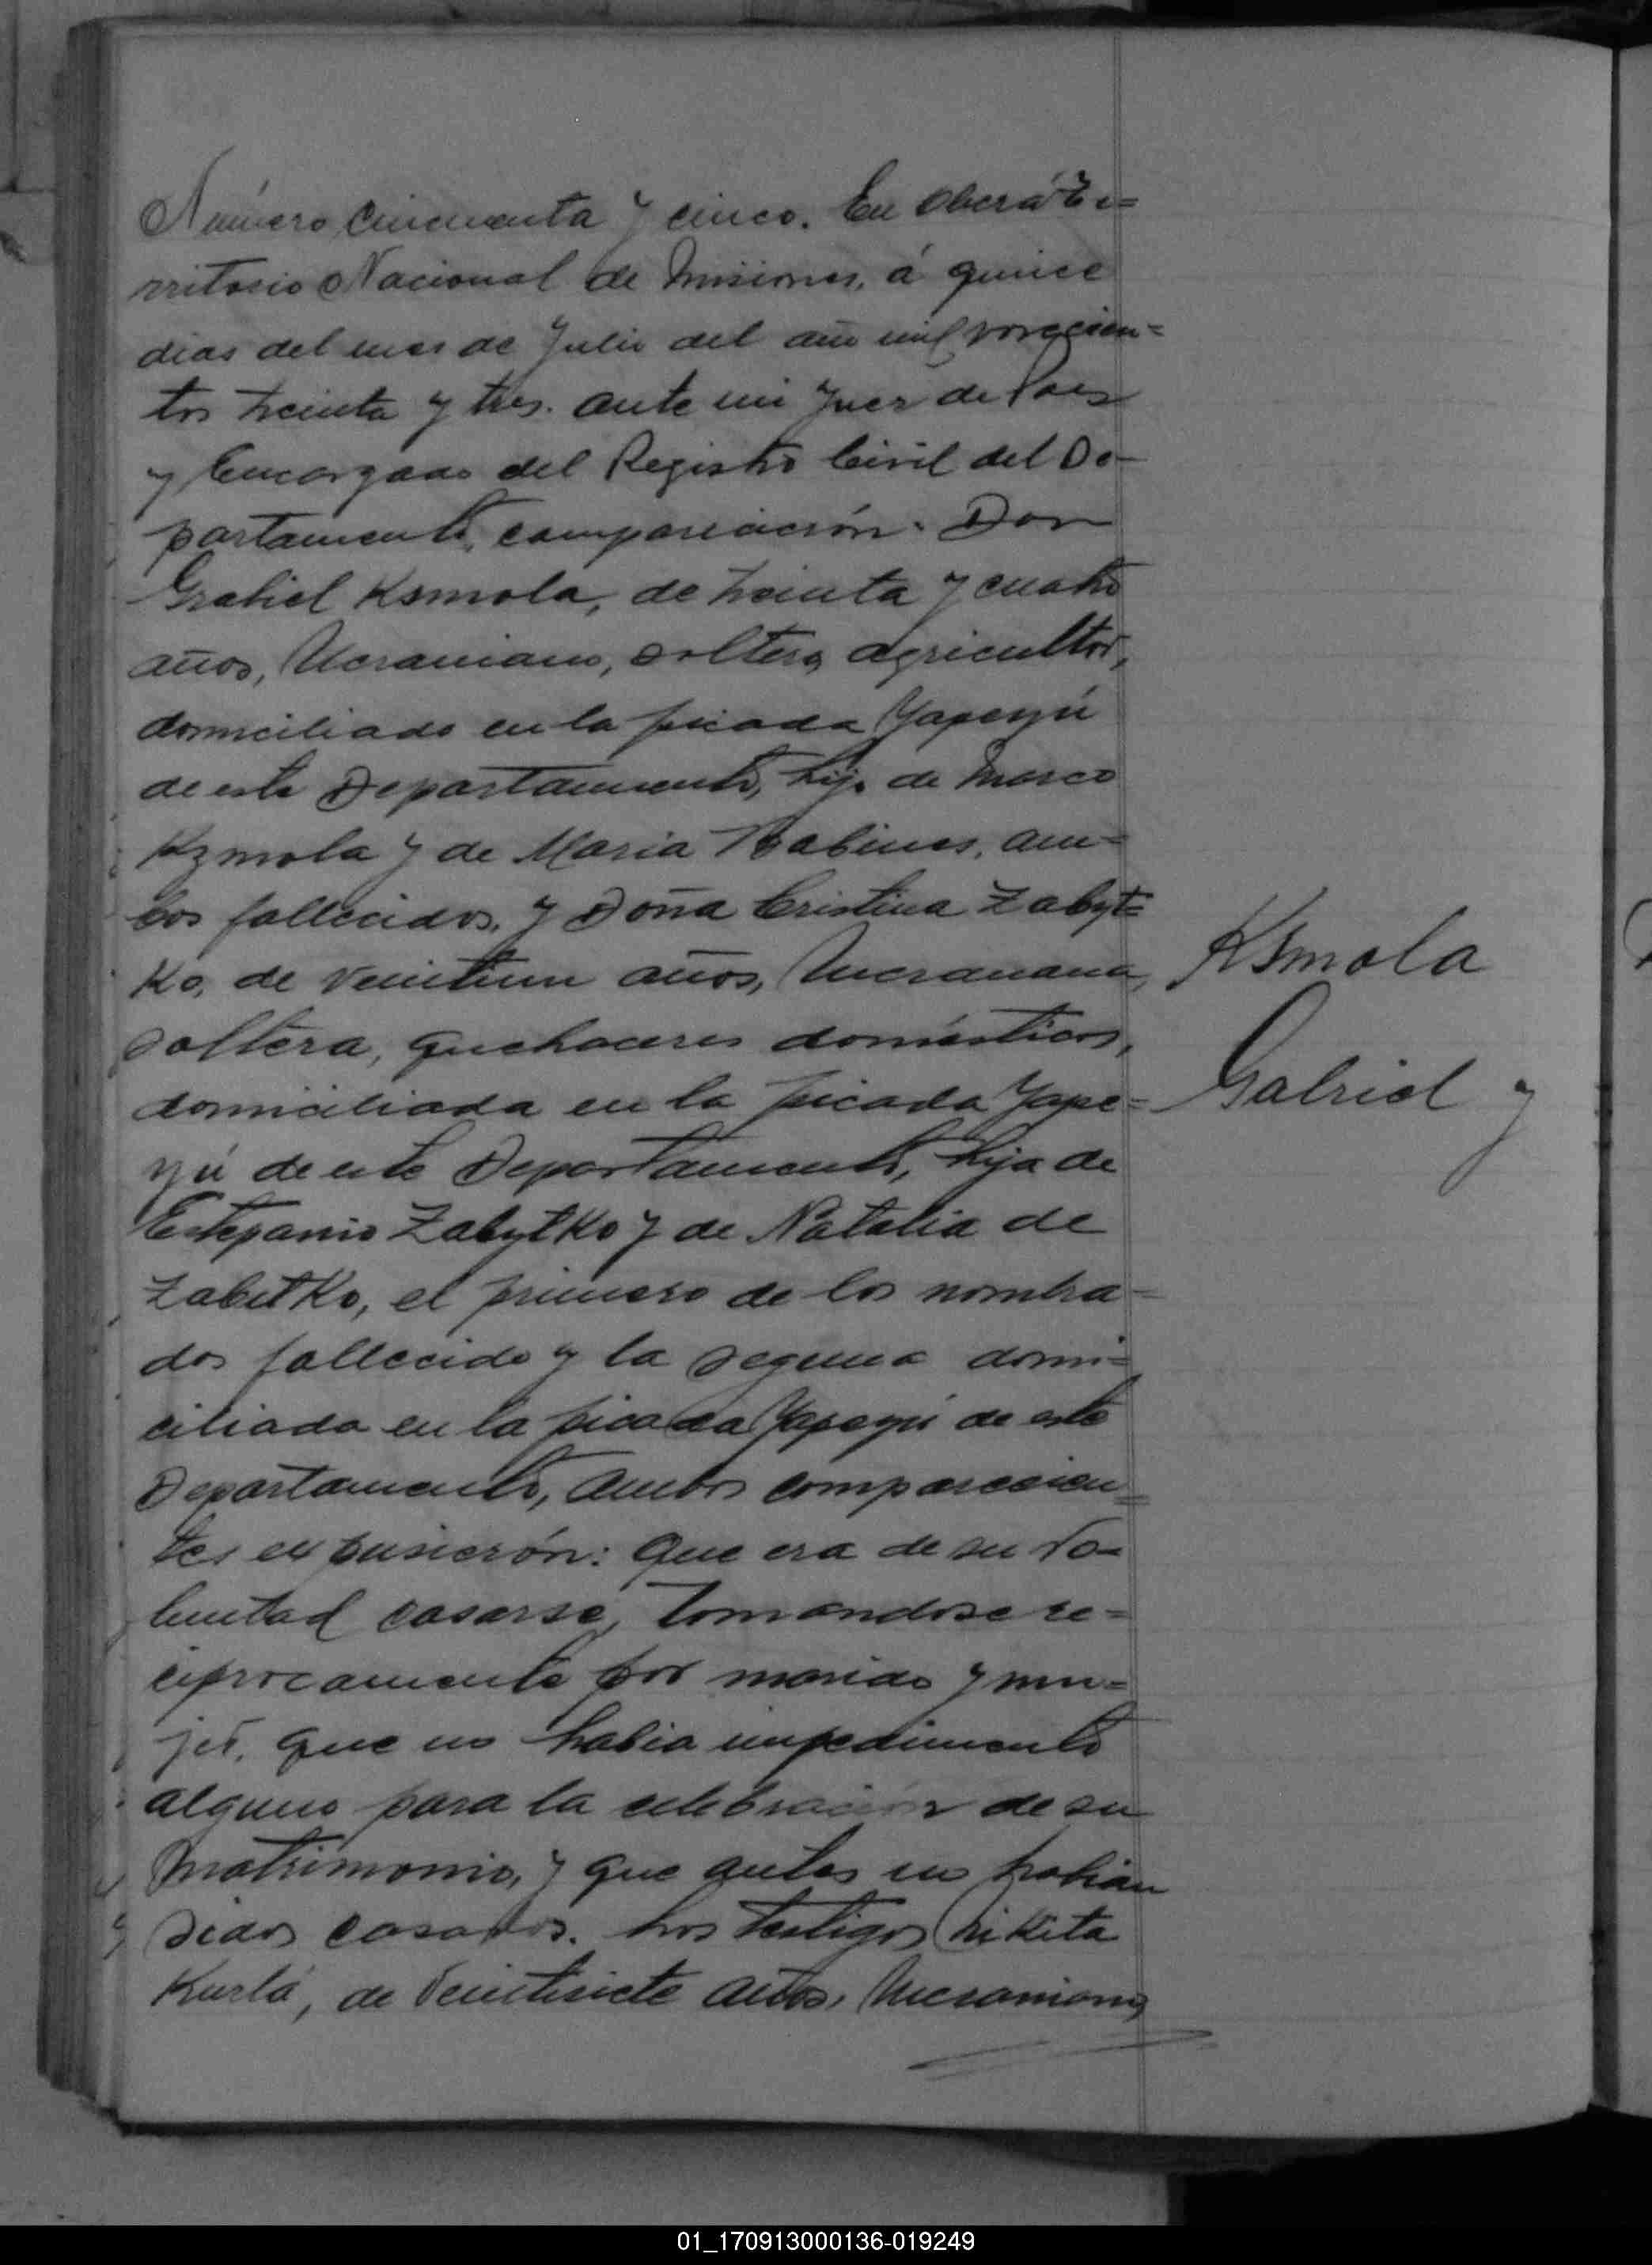 Número cincuenta y cinco. En Oberá Te=
rritorio Nacional de Misiones, á quince
dias del mes de Julio del año mil novecien=
tos treinta y tres. ante mi Juez de Paz
y Encargado del Registro Civil del De-
partamento, comparecieron. Don
Grabiel Ksmola, de treinta y cuatro
años, Ucraniano, soltero, agricultor,
domiciliado en la picada Yapeyú
de este Departamento, hijo de Marco
Kzmola y de Maria Babines, am=
bos fallecidos, y Doña Cristina Zabyt=
Ko, de veintiun años, Ucraniana,
soltera, quehaceres domésticos,
domiciliada en la picada Yape=
yú de este Departamento, hija de
Estepanio Zabytko y de Natalia de
ZabitKo, el primero de los nombra-
dos fallecido y la segunda domi=
ciliada en la picada Yapeyú de este
Departamento, ambos comparecien=
tes expusierón: que era de su vo=
luntad casarse, tomandose re=
ciprocamente por marido y mu=
jer. que no habia impedimento
alguno para la celebración de su
Matrimonio, y que antes no habian
sidos casados. Los testigos Nikita
Kurlá, de veintisiete años, Ucraniano,
Ksmola
Gabriel y
01_170913000136-019249